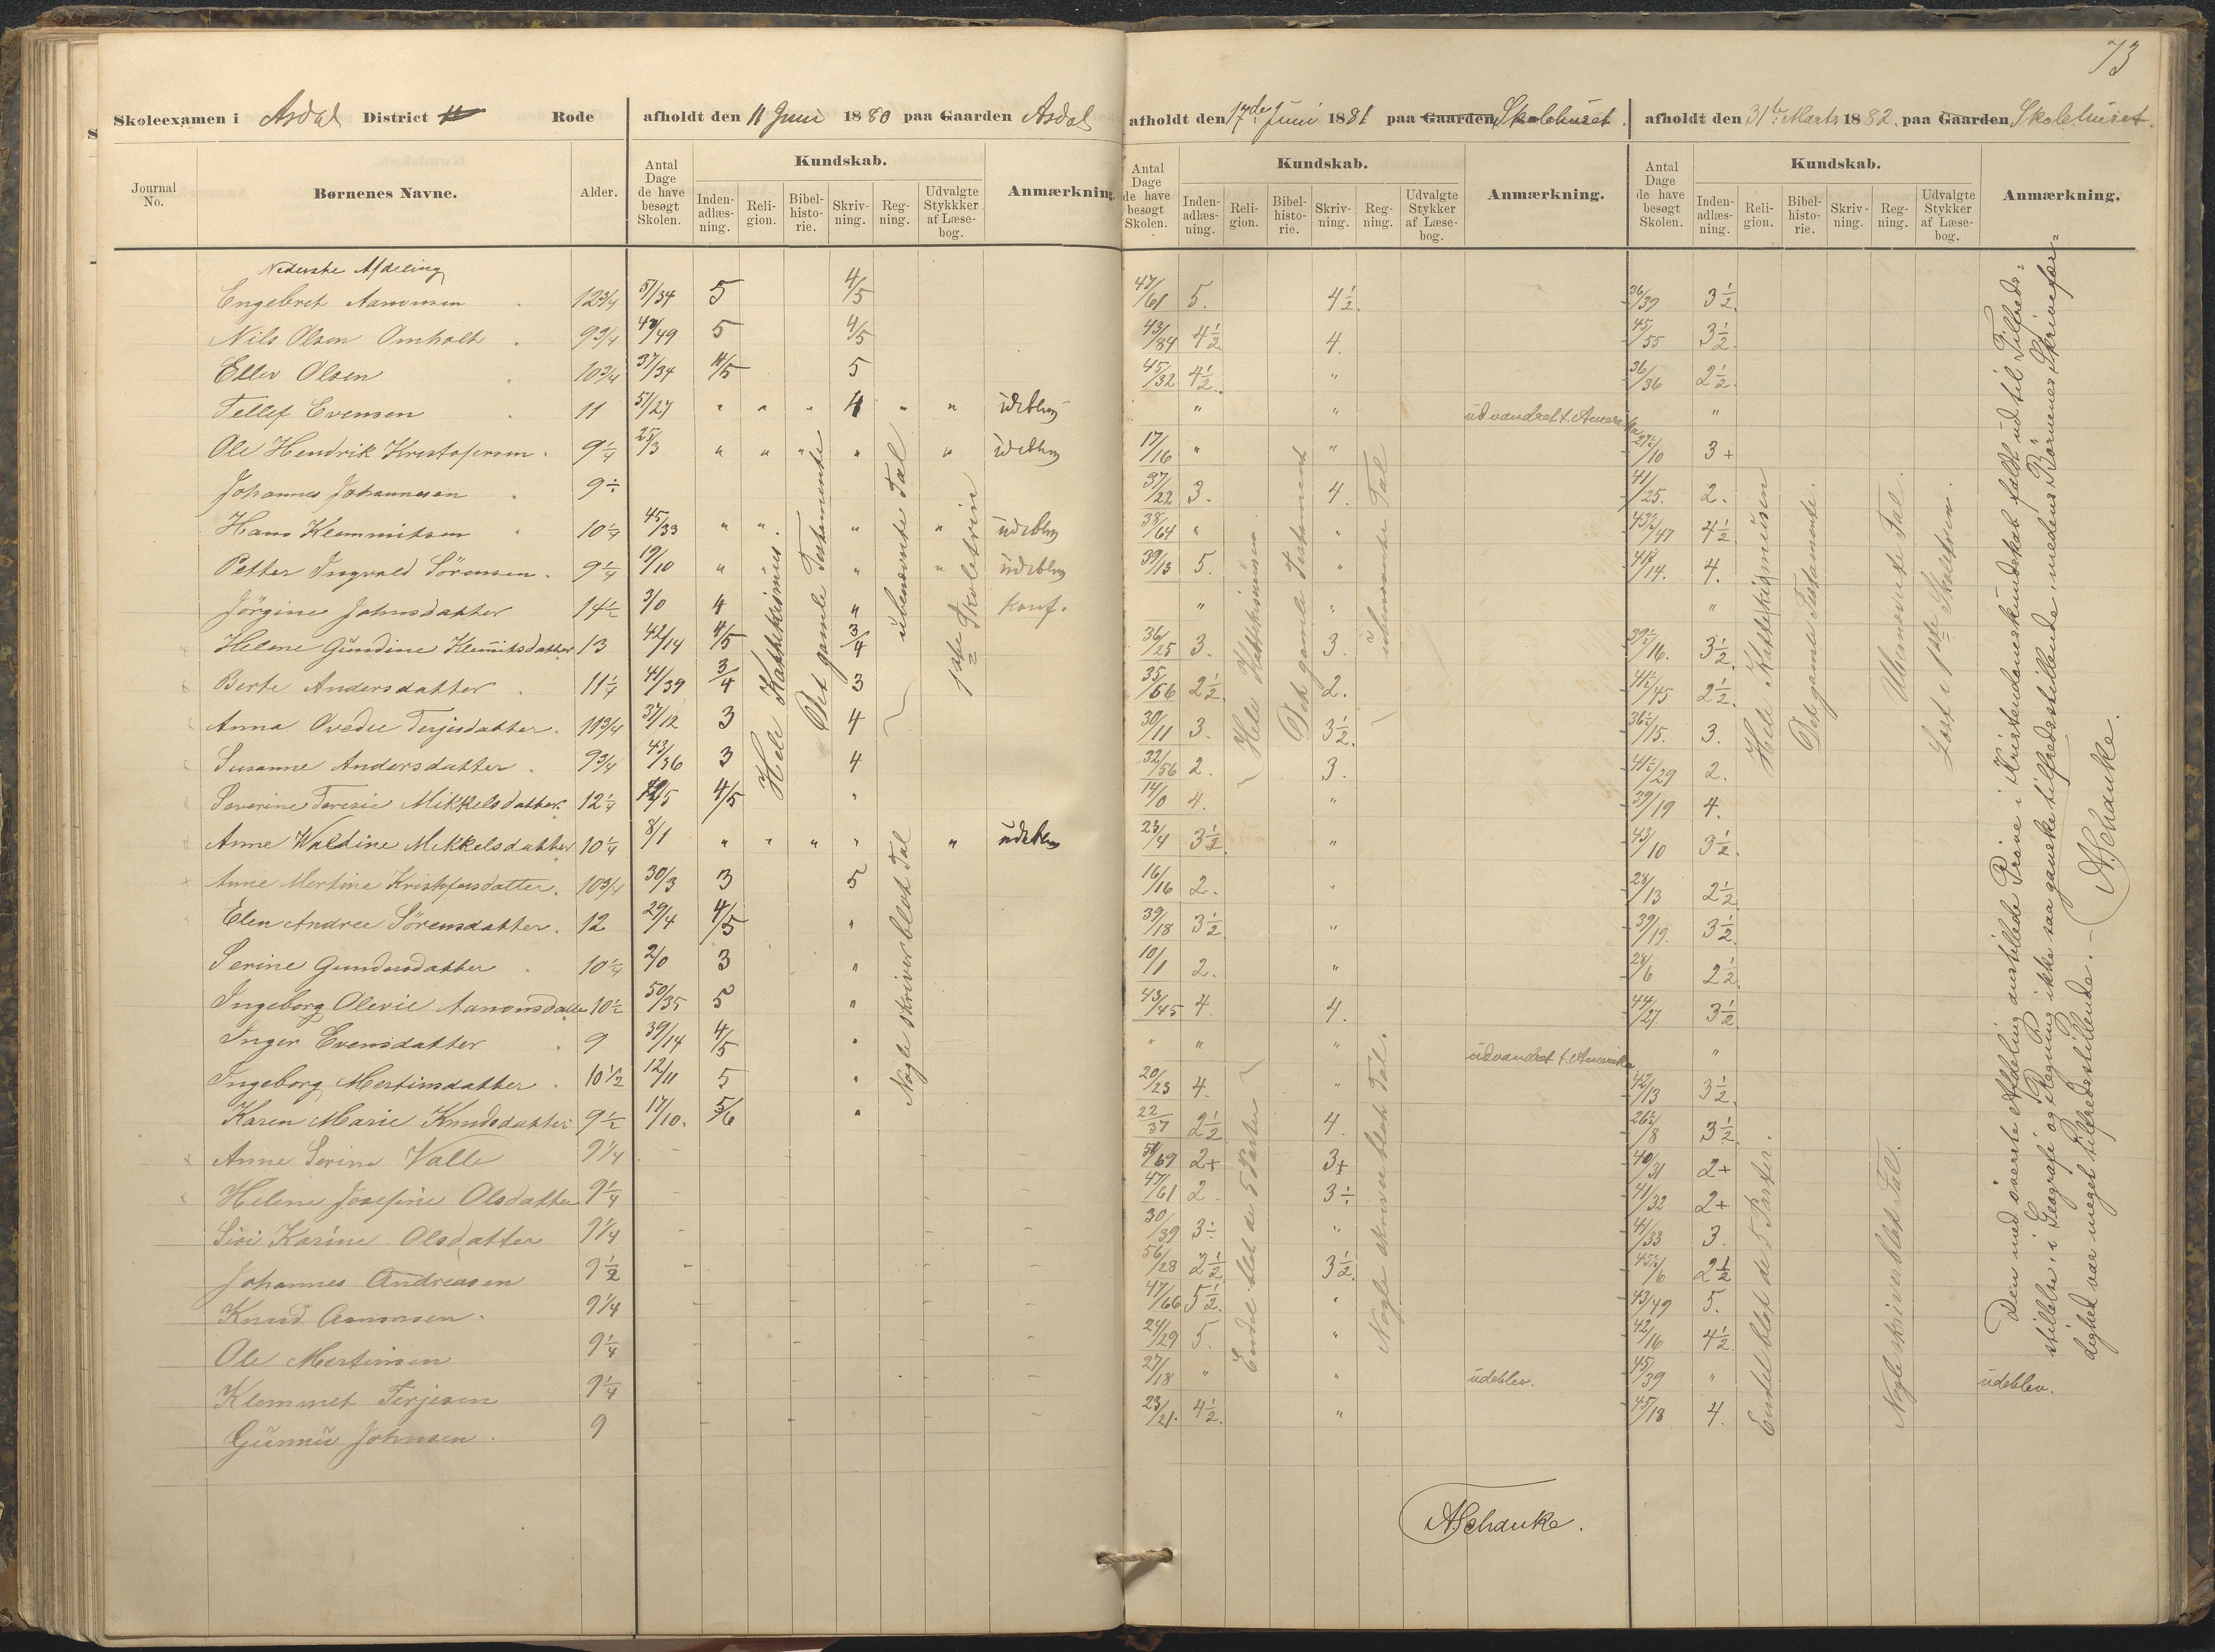 73
Skoleexamen i Asdal District 11 Rode afholdt den 11 Juni 1880 paa Gaarden Asdal
afholdt den 17de Juni 1881 paa Gaarden Skolehuset. afholdt den 31te Marts 1882. paa Gaarden Skolehuset.
Journal No. Børnenes Navne. Alder. Antal Dage de have besøgt Skolen. Kundskab. Indenadlæsning. Religion. Bibelhistorie. Skrivning. Regning. Udvalgte Stykkker af Læsebog. Anmærkning.
Antal Dage de have besøgt Skolen. Kundskab. Indenadlæsning. Religion. Bibelhistorie. Skrivning. Regning. Udvalgte Stykker af Læsebog. Anmærkning.
Antal Dage de have besøgt Skolen. Kundskab. Indenadlæsning. Religion. Bibelhistorie. Skrivning. Regning. Udvalgte Stykker af Læsebog. Anmærkning.
Nederste Afdeling
Engebret Aanonsen 12 3/4 51/34 5 4/5 47/61 5. 4 1/2. 36/39 3 1/2.
Nils Olsen Omholt 9 3/4 47/49 5 4/5 43/84 4 1/2. 4. 45/55 3 1/2.
Ellev Olsen 10 3/4 37/34 4/5 5 45/32 4 1/2. " 36/36 2 1/2.
Tellef Evensen 11 51/27 " " " 4 " " udebley " " udvandret t. Amerika "
Ole Hendrik Kristofersen 9 1/4 25/3 " " " " " udeblev 17/16 " " 27 1/2/10 3+
Johannes Johannesen 9 1/2 37/22 3. 4. 41/25. 2.
Hans Klemmitsen 10 1/4 45/33 " " " " udeblev 38/64 " " 43 1/2/47 4 1/2
Petter Ingvald Sörensen. 9 1/4 19/10 " " " udeblev 39/13 5. " 41/14. 4.
Jörgine Johnsdatter 14 1/2 3/0 4 " konf. " " "
Helene Gundine Klemitsdatter 13 42/14 4/5 3/4 36/25 3. 3. 39 1/2/16. 3 1/2.
Berte Andersdatter 11 1/4 41/39 3/4 3 35/66 2 1/2. 2. 41 1/2/45 2 1/2.
Anna Ovedie Terjesdatter. 11 3/4 37/12 3 4 30/11 3. 3 1/2. 36 1/2/15. 3.
Susanne Andersdatter 9 3/4 43/36 3 4 32/56 2. 3. 41 1/2/29 2.
Severine Teresie Mikkelsdatter. 12 1/4 4/5 " 14/0 4. " 39/19 4.
Anne Waldine Mikkelsdatter 10 1/4 8/1 " " " " " udeblev 23/4 3 1/2. " 43/10 3 1/2.
Anne Mertine Kristofersdatter. 10 3/4 30/3 3 5 16/16 2. " 28/13 2 1/2
Elen Andrea Sörensdatter. 12 29/4 4/5 " 39/18 3 1/2. " 39/19. 3 1/2.
Serine Gundersdatter 10 1/4 2/0 3 " 10/1 2. " 28/6 2 1/2
Ingeborg Olevie Aanonsdatter 10 1/2 50/35 5 " 43/45 4. 4. 44/27 3 1/2
Inger Evensdatter 9 39/14 4/5 " " " " udvandret t. Amerika "
Ingeborg Mertinsdatter 10 1/2 12/11 5 " 20/23 4. " 42/13 3 1/2.
Karen Marie Knudsdatter 9 1/2 17/10. 5/6 " 22/37 2 1/2 4. 26 1/2/8 3 1/2.
Anne Serine Valle 9 1/4 51/69 2+ 3+ 40/31 2+
Helene Josefine Olsdatter 9 1/4 47/61 2. 3÷ 41/32 2+
Siri Karine Olsdatter 9 1/4 30/39 3÷ " 41/33 3.
Johannes Andreasen 9 1/2 56/28 2 1/2 3 1/2. 45 1/2/6 2 1/2
Knud Aanonsen. 9 1/4 47/66 5 1/2. " 43/49 5.
Ole Mertinsen 9 1/4 24/29 5. " 42/16 4 1/2
Klemmet Terjesen 9 1/4 27/18 " " udeblev. 45/39 " udeblev.
Gunnu Johnsen. 9 23/21. 4 1/2. " 45/18 4.
Hele Katekismus.
Det gamle Testamente
ubenævnte Tal
1ste Skoletrin
Nogle skriver blot Tal
Hele Katekismusen
Det gamle Testament
ubenævnte Tal
Endel blot de 5 Parter
Nogle skriver blot Tal.
Hele Katekismusen
Det gamle Testamente.
Ubenævnte Tal.
Læst i 1ste Skoletrin.
Endel blot de 5 Parter.
Nogle skriver blot Tal.
Den med øverste Afdeling anstillede Prøve i Kristendomskundskab faldt ud til Tilfreds=
stillelse, i Geografi og Regning ikke saa ganske tilfredsstillende, medens Børnenes Skrivefær=
dighed var meget tilfredsstillende. — A. Schanke.
A. Schanke.